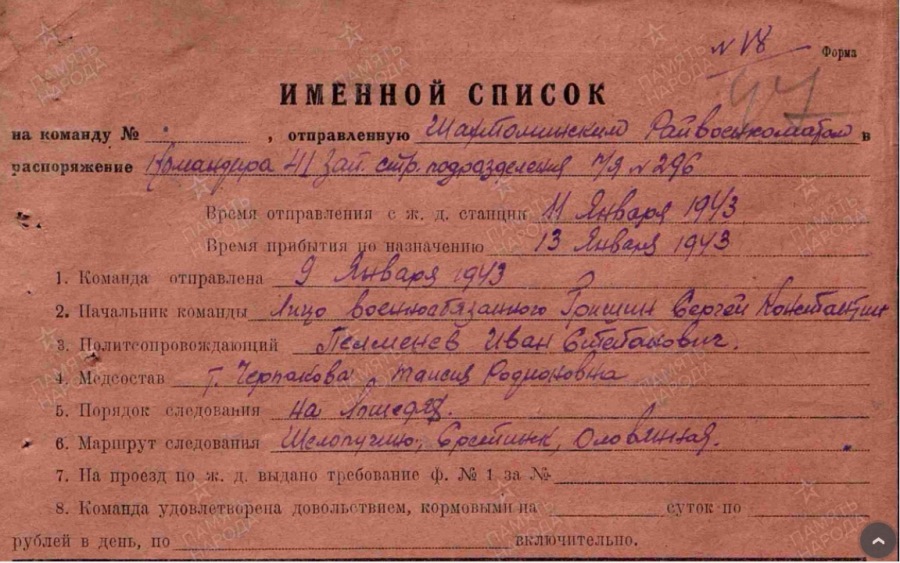 N 18 Форма
ИМЕННОЙ СПИСОК
на команду № , отправленную Шахтоминским Райвоенкоматом в
распоряжение Командира 41 Зап. стр. подразделения п/я N 296
Время отправления с ж. д. станции 11 Января 1943
Время прибытия по назначению 13 Января 1943
1. Команда отправлена 9 Января 1943
2. Начальник команды Лицо военнообязанного Гришин Сергей Константин
3. Политсопровождающий Пельменев Иван Степанович.
4. Медсостав т. Черпакова Таисия Родионовна
5. Порядок следования на
6. Маршрут следования Шелопугино, Сретинск, Оловянная.
7. На проезд по ж. д. выдано требование ф. № 1 за №
8. Команда удовлетворена довольствием, кормовыми на суток по
рублей в день, по включительно.